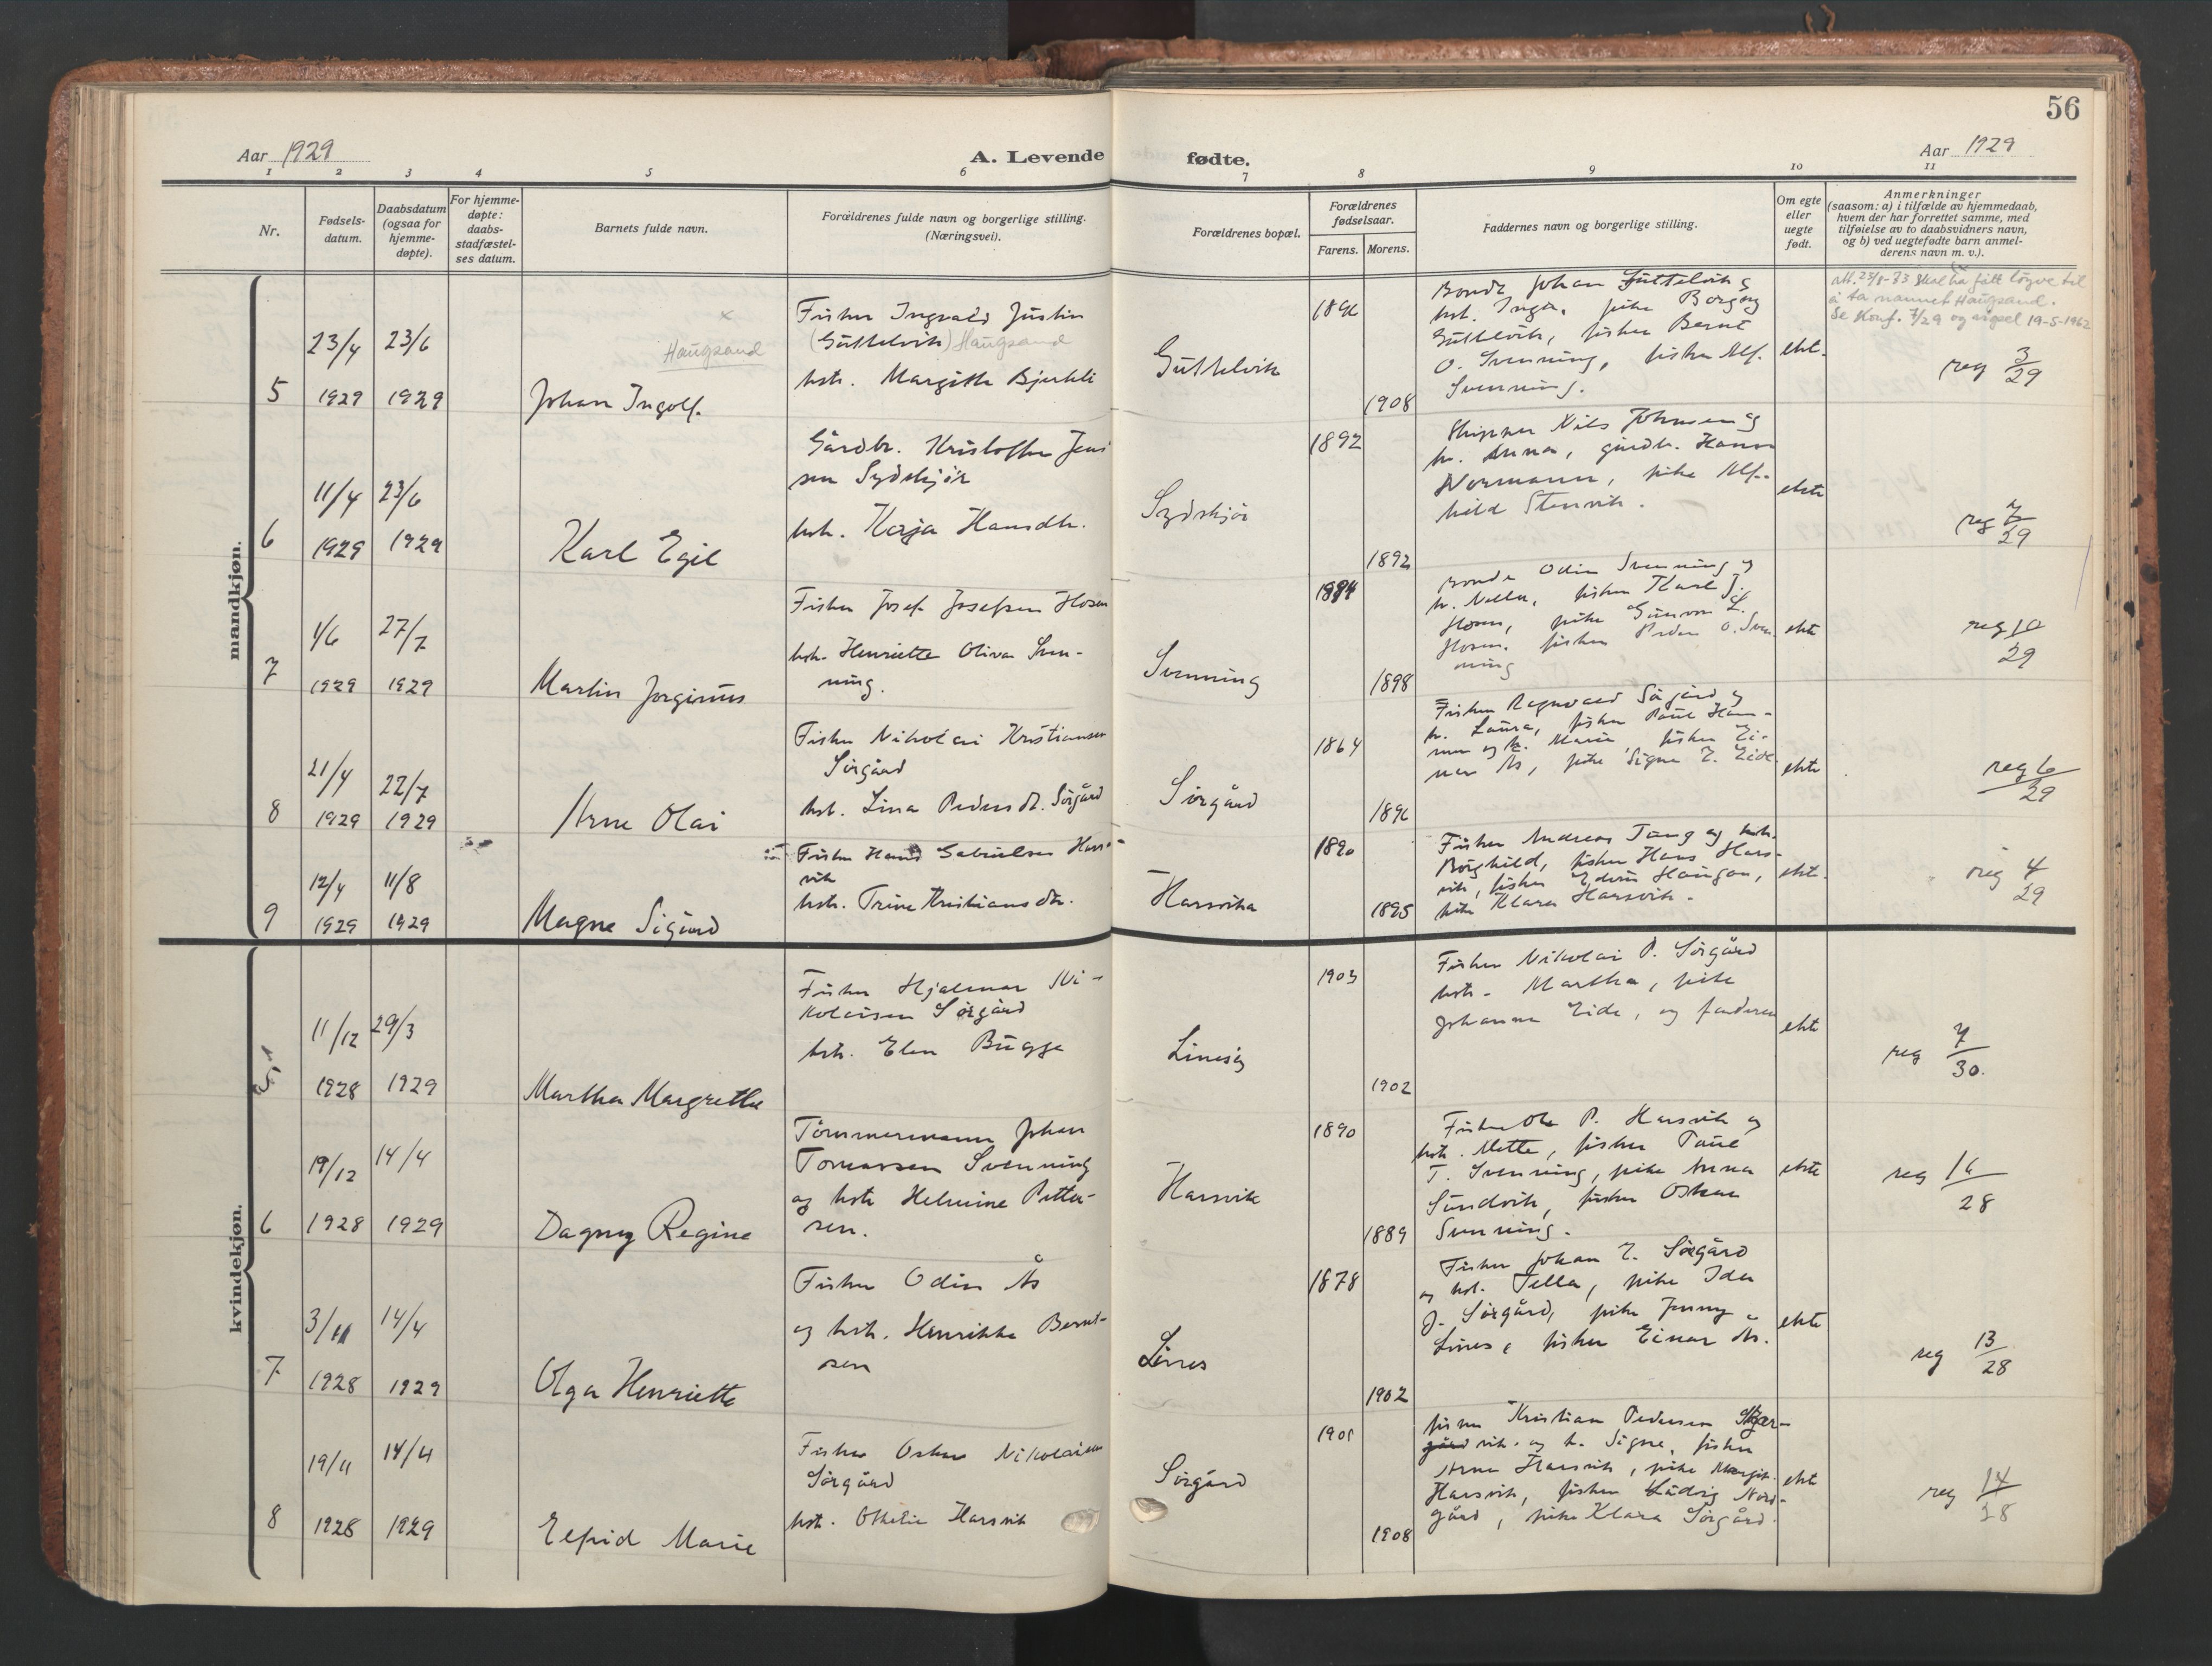 56
Aar 1929
A. Levende fødte.
Aar 1929
1 2 3 4 5 6 7 8 9 10 11
Nr.
Fødsels-
datum.
Daabsdatum
(ogsaa for
hjemme-
døpte).
For hjemme-
døpte:
daabs-
stadfæstel-
ses datum.
Barnets fulde navn.
Forældrenes fulde navn og borgerlige stilling.
(Næringsvei).
Forældrenes bopæl.
Forældrenes
fødselsaar.
Farens. Morens.
Faddernes navn og borgerlige stilling.
Om egte
eller
uegte
født.
Anmerkninger
(saasom: a) i tilfælde av hjemmedaab,
hvem der har forrettet samme, med
tilføielse av to daabsvidners navn,
og b) ved uegtefødte barn anmel-
derens navn m. v.).
mandkjøn.
5
23/4
1929
23/6
1929
Haugsand
Johan Ingolf.
Fisker Ingvald Justin
(Guttelvik) Haugsand
hstr. Margith Bjerkli
Guttelvik
1908
Bonde Johan Guttelvik og
hst. Inga, pike Borgny
Guttelvik, fisker Bernt
O. Svenning, fisker Alf.
Svenning.
ekt.
att. 23/8-73 Skal ha fått løyve til
å ta namnet Haugsand.
Se Konf. 7/29 og vigsel 19-5-1962
reg 3/29
6
11/4
1929
23/6
1929
Karl Egil
Gårdbr. Kristoffer Jens
sen Sydskjør
hstr. Kaja Hansdtr.
Sydskjør
1892
1892
Skipper Nils Johnsen og
h. Anna, gårdbr. Hans
Normann, pike Alf-
hild Stenvik.
ekte
reg 2/29
7
1/6
1929
27/7
1929
Martin Jorginus
Fisker Josef Josefsen Hosen
hstr. Henriette Oliva Sven-
ning.
Svenning
1898
Bonde Odin Svenning og
h. Nella, fisker Karl J.
Hosen, pike Gunvor L.
Hosen, fisker Peder O. Sven-
ning
ekte
reg 10/29
8
21/4
1929
22/7
1929
Arne Olai
Fisker Nikolai Kristiansen
Sørgård
hst. Lina Pedersdtr. Sørgård
Sørgård
1864
1896
Fisker Ragnvald Sørgård og
h. Laura, fisker Paul Han-
sen og h. Marie, fisker Ei-
nar Ås, pike Signe E. Eide
ekte
reg 6/29
9
12/4
1929
11/8
1929
Magne Sigurd
Fisker Hans Gabrielsen Hars-
vik
hstr. Trine Kristiansdtr.
Harsvika
1890
1895
Fisker Andreas Tung og hstr.
Borghild, fisker Hans Hars-
vik, fisker Edvin Haugan,
pike Klara Harsvik.
ekte.
reg 4/29
kvindekjøn.
5
11/12
1928
29/3
1929
Martha Margrethe
Fisker Hjalmar Ni-
kolaisen Sørgård
hstr. Elen Bugge
Linesøy
1903
1902
Fisker Nikolai P. Sørgård
hstr. Martha, pike
Johanna Eide, og faderen
ekte
reg 7/30.
6
19/12
1928
14/4
1929
Dagny Regine
Tømmermann Johan
Tomassen Svenning
og hstr Helmine Petter-
sen.
Harsvik
1890
1889
Fisker Ole P. Harsvik og
hstr. Mette, fisker Paul
T. Svenning, pike Anna
Sundvik, fisker Oskar
Svenning.
ekte
reg 16/28
7
3/11
1928
14/4
1929
Olga Henriette
Fisker Odin Ås
og hstr. Henrikke Bernt-
sen
Lines
1878
1902
Fisker Johan E. Sørgård
og hst. Tella, pike Ida
J. Sørgård, pike Jenny
Lines, fisker Einar Ås.
ekte
reg 13/28
8
19/11
1928
14/4
1929
Elfrid Marie
Fisker Oskar Nikolaisen
Sørgård
hst. Othelie Harsvik
Sørgård
1901
1908
fisker Kristian Pedersen
vik. og h. Signe, fisker
Arne Harsvik, pike Margit
Harsvik, fisker Ludvig Nord-
gård, pike Klara Sørgård.
ekte
reg 14/28